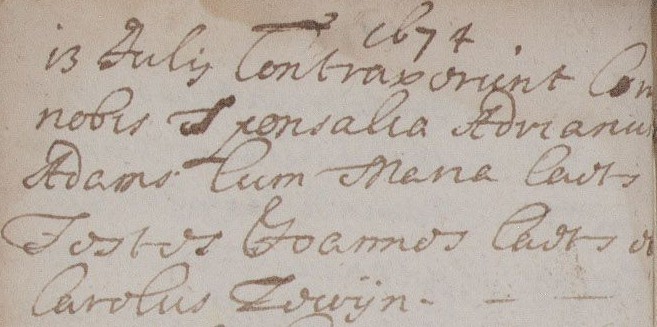 1674
13 Julij Contraxerunt Com
nobis Sponsalia Adrianus
Adams Cum Maria Caets
Testes Joannes Caets et
Carolus Tewijn -